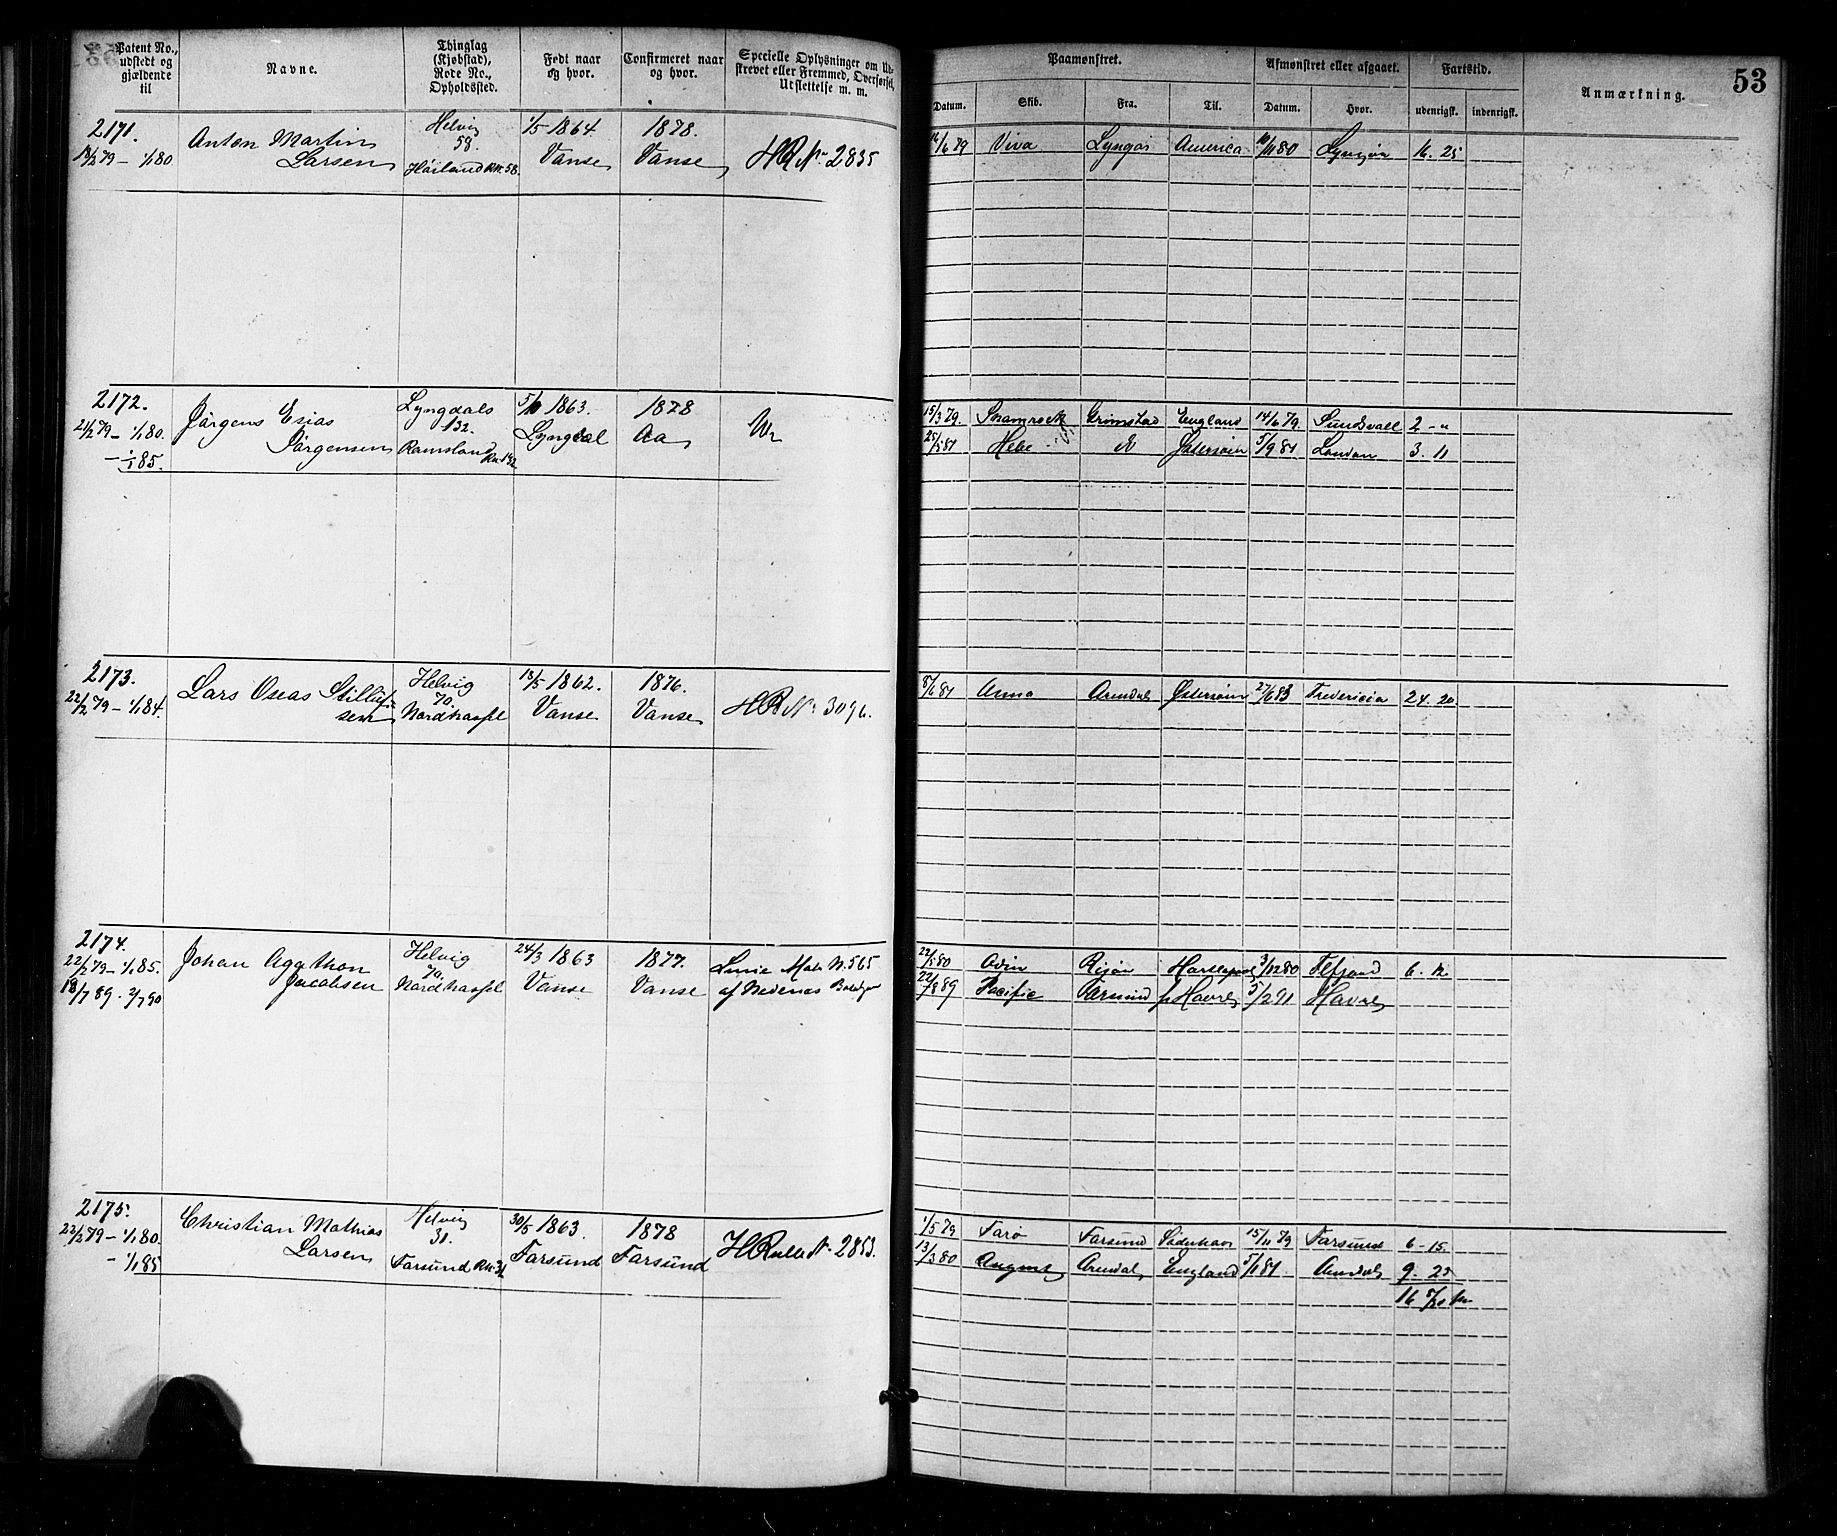 53
Patent No., udstedt og gjældende til
Navne.
Thinglag (Kjøbstad), Rode No., Opholdssted.
Født naar og hvor.
Confirmeret naar og hvor.
Specielle Oplysninger om Udskrevet eller Fremmed, Overførsel, Udslettelse m. m.
Paamønstret.
Afmønstret eller afgaaet.
Fartstid.
Anmærkning.
Datum.
Skib.
Fra.
Til.
Datum.
Hvor.
udenrigsk.
indenrigsk.
2171. Anton Martin Helvig 1/5 1864 1878.
18/2 79 - 1/1 80 Larsen 58. Vanse Vanse HR No 2835
Høiland RN. 58.
16/6 79 Viva Lyngør America 10/11 80 Lyngør 16. 25
2172. Jørgens Esias Lyngdals 5/10 1863. 1878
21/2 79 - 1/1 80. Jørgensen 132. Lyngdal Aa
- 1/1 85. Ramsland RN. 132
15/3 79. Shamrock Grimstad England 14/6 79. Sundsvall 2 - "
25/5 81 Hebe Østersøen 5/9 81 London 3. 11
2173. Lars Oseas Stillufsen Helvig 13/5 1862. 1876.
22/2 79 - 1/1 84. 70. Nordhassel Vanse Vanse HR No 3096.
8/6 81 Anna Arendal Østersøen 27/6 83 Fredericia 24. 20
2174. Johan Agathon Helvig 24/3 1863 1877.
22/2 79 - 1/1 85. Jacobsen 70. Nordhassel Vanse Vanse
18/7 89 - 2/7 90 af Nedenæs
22/5 80 Odin Risør Hartlepool 3/12 80 6. 12
22/7 89 Pacific Farsund Havre 5/2 91 Havre
2175. Christian Mathias Helvig 30/5 1863. 1878
22/2 79 - 1/1 80. Larsen 31. Farsund Farsund HRulle No 2853.
- 1/1 85 Farsund RN. 31
1/5 79 Farø Farsund Söderhavn 15/11 79 Farsund 6 - 15.
13/3 80 August Arendal England 5/1 81. Arendal 9. 25